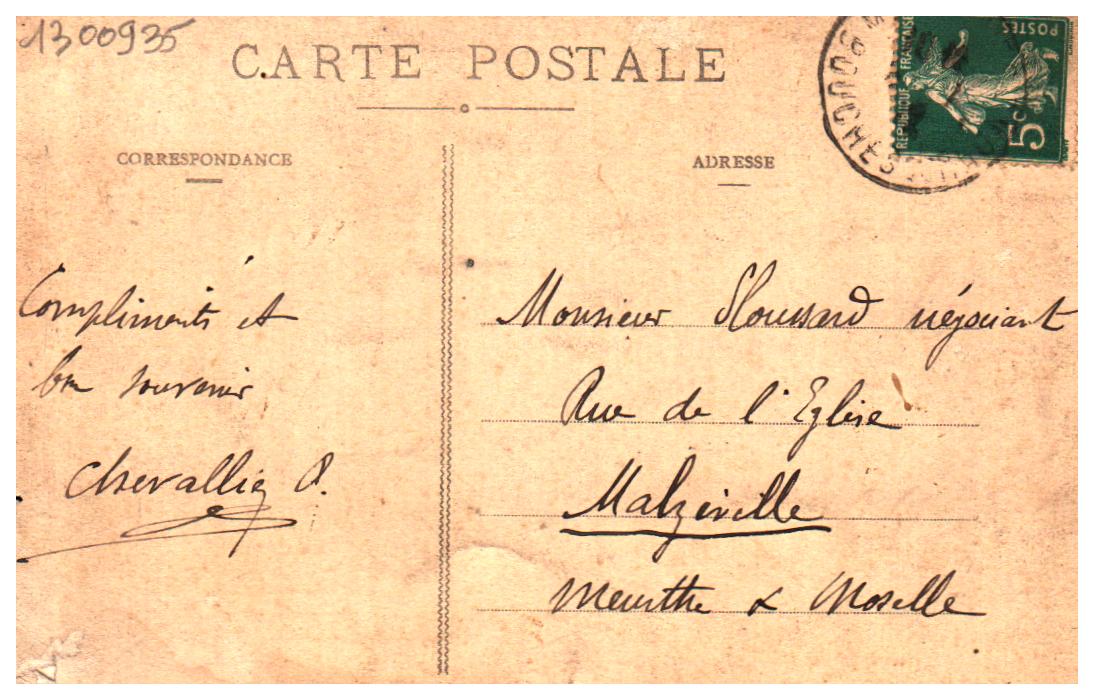 1300935
CARTE POSTALE
CORRESPONDANCE
ADRESSE
RÉPUBLIQUE FRANÇAISE
POSTES
5c
Compliments et
bon souvenir
Chevallier P.
Monsieur négociant
Rue de l'Eglise
Malzéville
Meurthe & Moselle